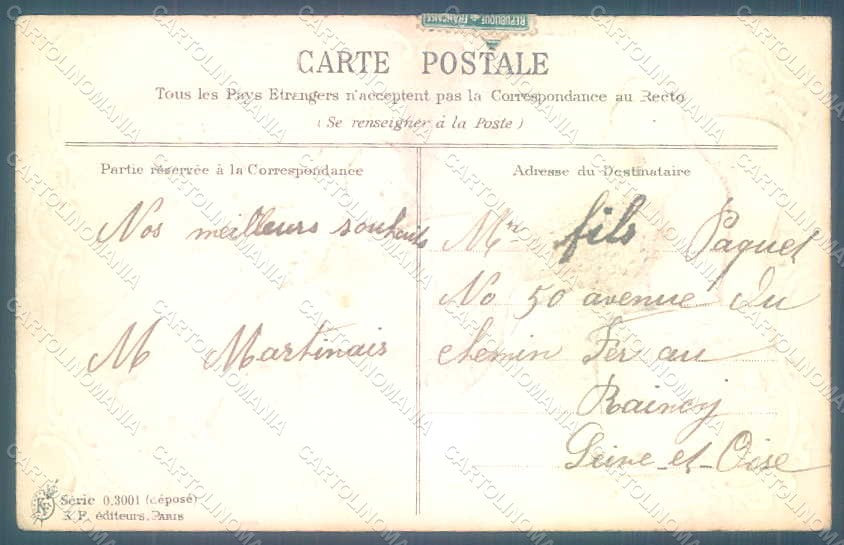 REPUBLIQUE FRANÇAISE
CARTE POSTALE
Tous les Pays Etrangers n'acceptent pas la Correspondance au Recto
(Se renseigner à la Poste)
Partie réservée à la Correspondance
Nos meilleurs souhaits
M Martinais
Adresse du Destinataire
Mr fils Paquet
No 50 avenue Du
chemin Fer au
Raincy
Seine-et-Oise
Série 0.3001 (déposé)
K.F. éditeurs, PARIS
CARTOLINOMANIA